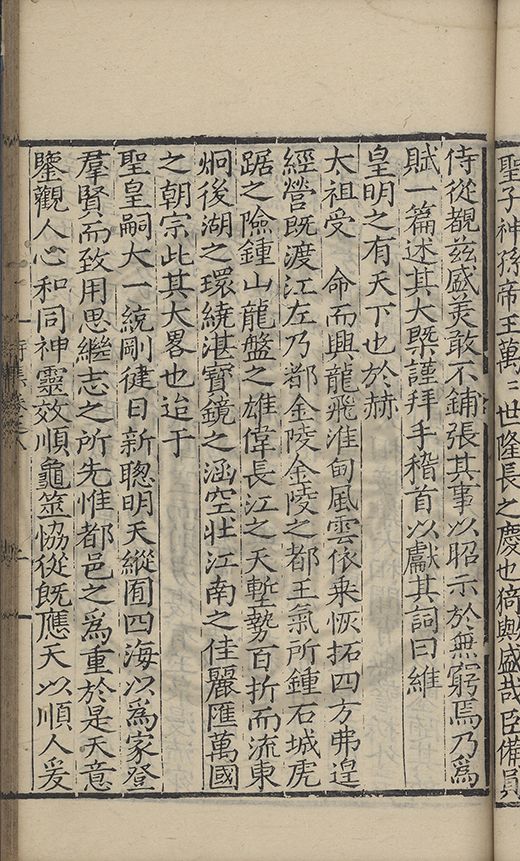 聖子神孫帝王萬〻世隆長之慶也猗歟盛哉臣備員
侍從覩兹盛羙敢不鋪張其事以昭示於無窮焉乃為
賦一篇述其大槩謹拜手稽首以獻其詞曰維
皇明之有天下也於赫
太祖受 命而興龍飛淮甸風雲依乗恢拓四方弗遑
經營既渡江左乃都金陵金陵之都王氣所鍾石城虎
踞之險鍾山龍盤之雄偉長江之天塹勢百折而流東
炯後湖之環繞湛寶鏡之涵空壯江南之佳麗匯萬國
之朝宗此其大畧也迨于
聖皇嗣大一統剛健日新聰明天縱囿四海以為家登
羣賢而致用思繼志之所先惟都邑之為重於是天意
鑒觀人心和同神靈效順龜筮協從既應天以順人爰